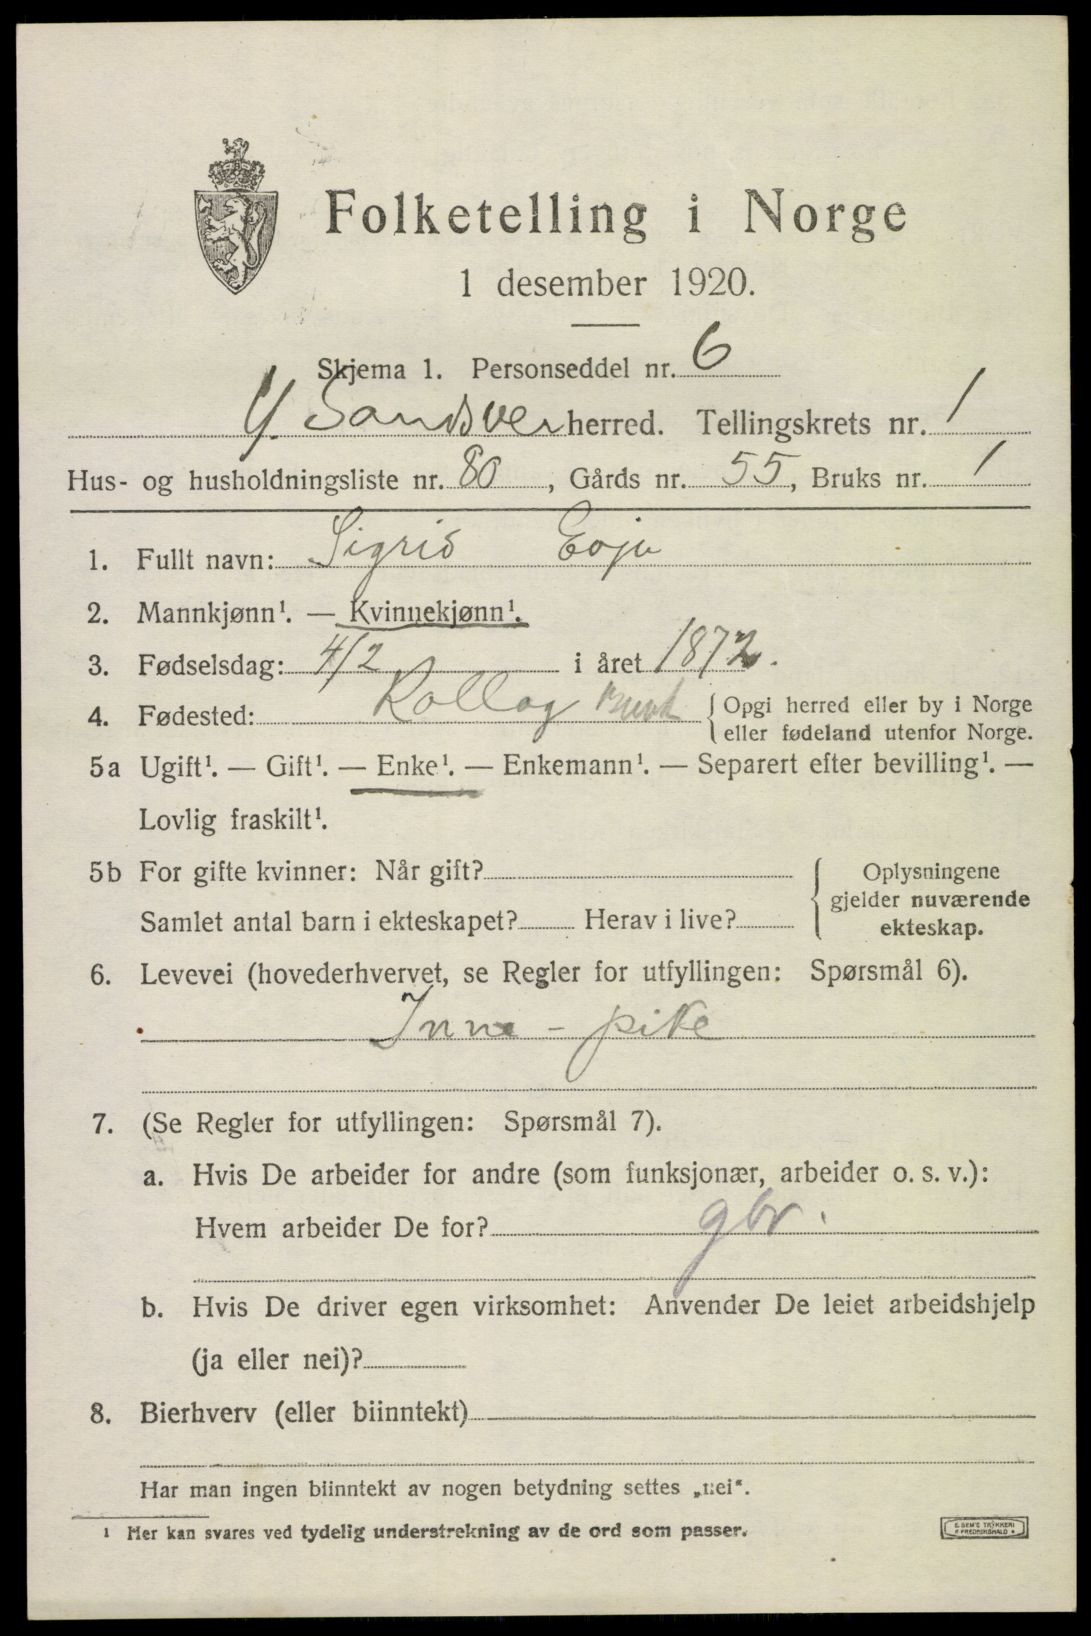 Folketelling i Norge
1 desember 1920.
Skjema 1. Personseddel nr. 6
Y. Sandsver herred. Tellingskrets nr. 1
Hus- og husholdningsliste nr. 80, Gårds nr. 55, Bruks nr. 1
1. Fullt navn: Sigrid
2. Mannkjønn¹. — Kvinnekjønn¹.
3. Fødselsdag: 4/2 i året 1872.
4. Fødested: Rollag Busk { Opgi herred eller by i Norge
eller fødeland utenfor Norge.
5a Ugift¹. — Gift¹. — Enke¹. — Enkemann¹. — Separert efter bevilling¹. —
Lovlig fraskilt¹.
5b For gifte kvinner: Når gift? { Oplysningene
gjelder nuværende
Samlet antal barn i ekteskapet? Herav i live? ekteskap.
6. Levevei (hovederhvervet, se Regler for utfyllingen: Spørsmål 6).
Inne - pike
7. (Se Regler for utfyllingen: Spørsmål 7).
a. Hvis De arbeider for andre (som funksjonær, arbeider o. s. v.):
Hvem arbeider De for? gbr.
b. Hvis De driver egen virksomhet: Anvender De leiet arbeidshjelp
(ja eller nei)?
8. Bierhverv (eller biinntekt)
Har man ingen biinntekt av nogen betydning settes „nei“.
¹ Her kan svares ved tydelig understrekning av de ord som passer.
E. SEM'S TRYKKERI
FREDRIKSHALD